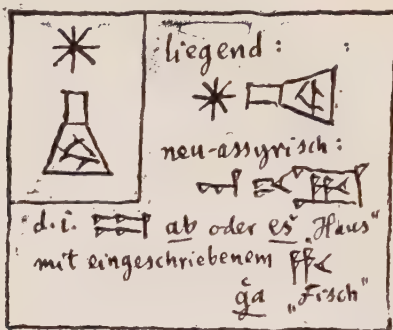 liegend :
neu-assyrisch :
d.i. ab oder eš „Haus“
mit eingeschriebenem
ğa „Fisch“